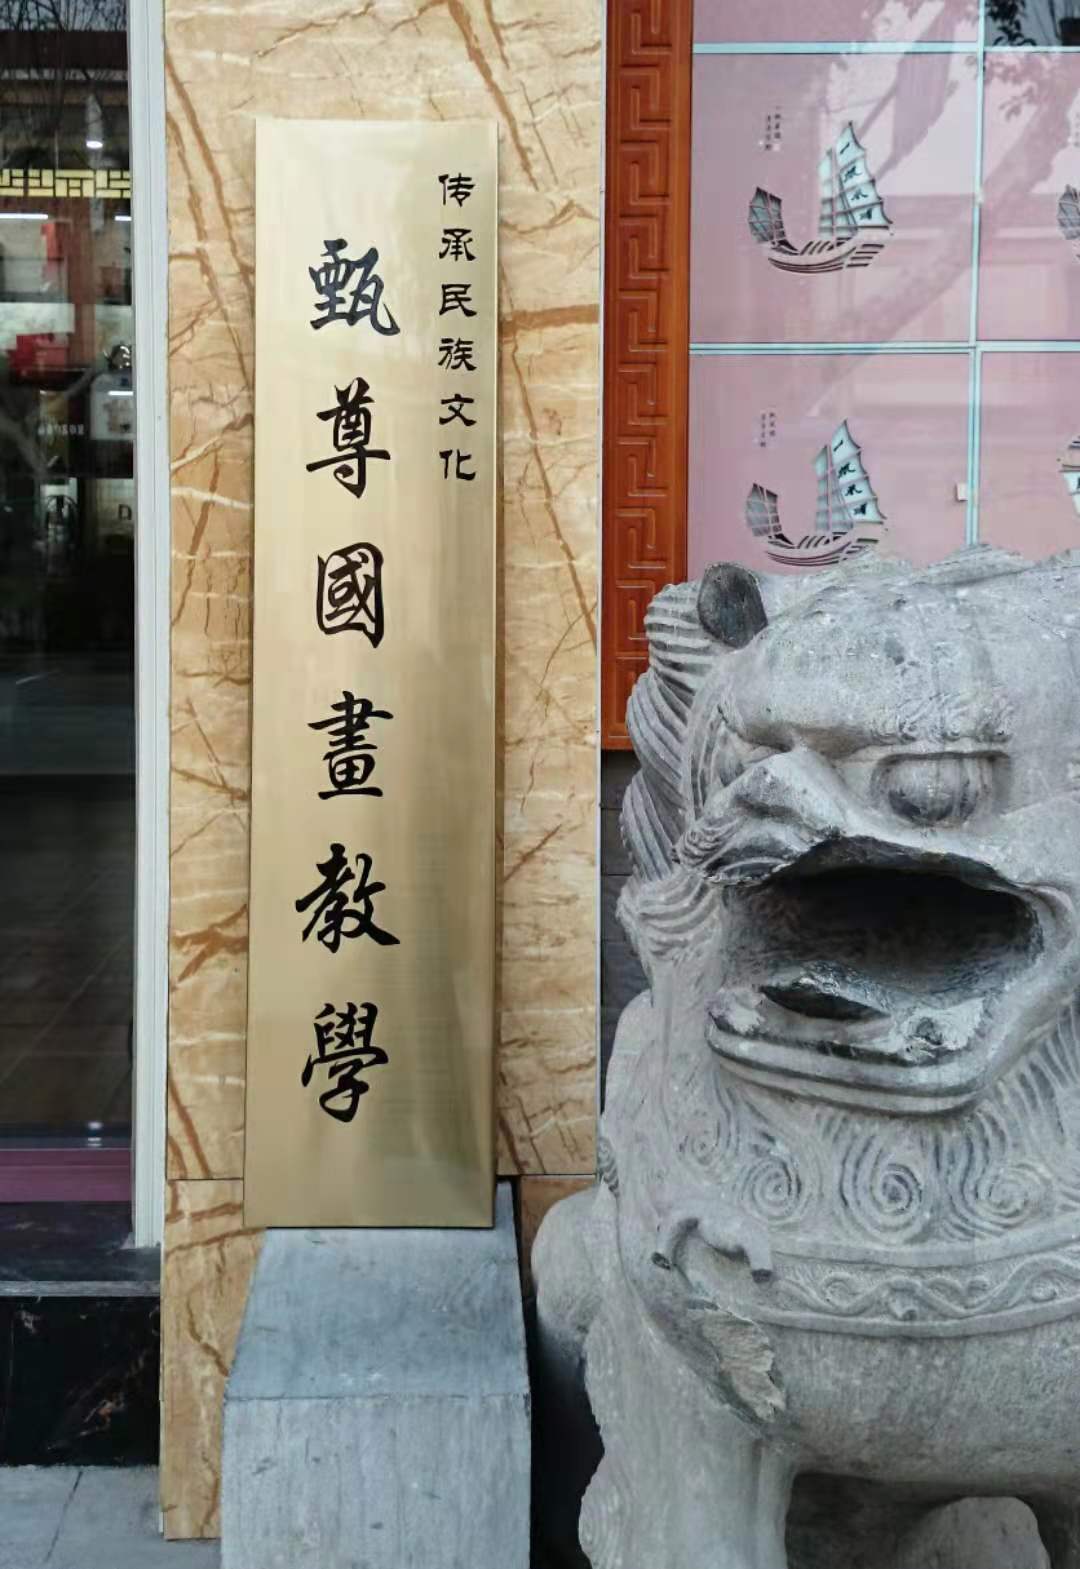 传承民族文化
甄尊國畫教學
一帆风顺
一帆风顺